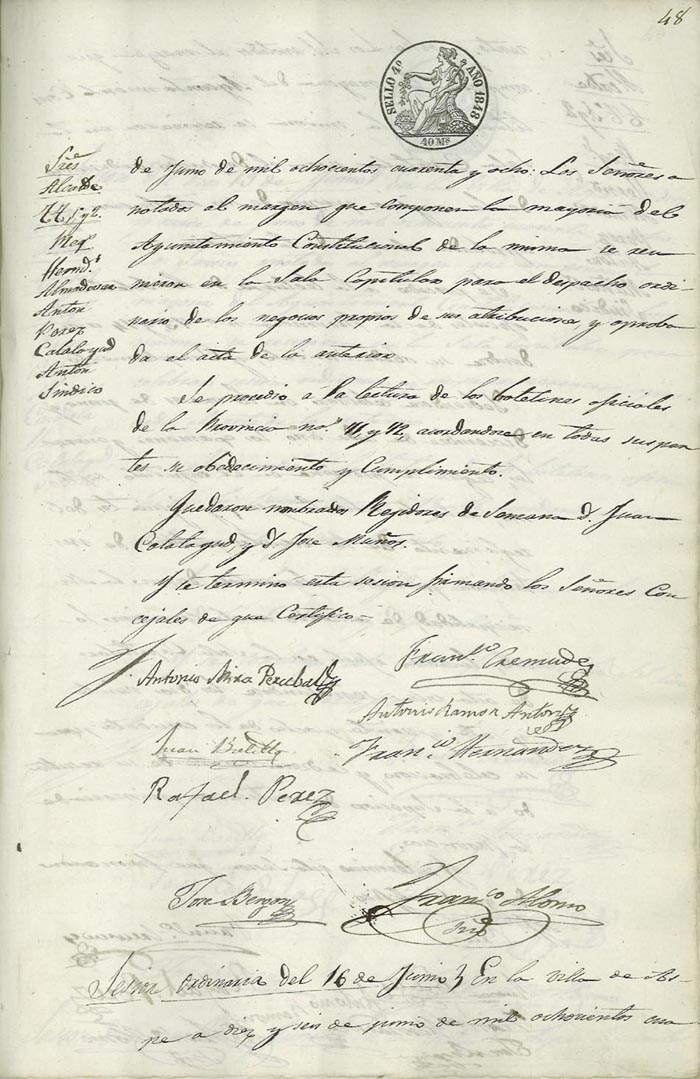 48
SELLO 4º AÑO 1848
40 Ms
Sres
Alcalde
TT 1 y 2.
Reg.
Hernds
Almodovar
Anton
Perez
Calatayud
Anton
Sindico
de Junio de mil ochocientos cuarenta y ocho: Los Señores a
notados al margen que componen la mayoria del
Ayuntamiento Constitucional de la misma se reu
nieron en la Sala Capitular para el despacho ordi
nario de los negocios propios de sus atribuciones, y aproba
da el acta de la anterior
Se procedio a la lectura de los boletines oficiales
de la Provincia nos 41 y 42, acordandose en todas sus par
tes su obedecimiento y Cumplimiento.
Quedaron nombrados Regidores de Semana d. Juan
Calatayud, y d. Jose Muños.
Y se termino esta sesion firmando los Señores Con
cejales de que Certifico=
Antonio Mira Percebal
Franco Cremades
Antonio Ramon Anton
Juan Botella
Franco Hernandez
Rafael Perez
Jose
Franco Alonso
Srio
Sesion ordinaria del 16 de Junio } En la villa de As-
pe a diez y seis de junio de mil ochocientos cua